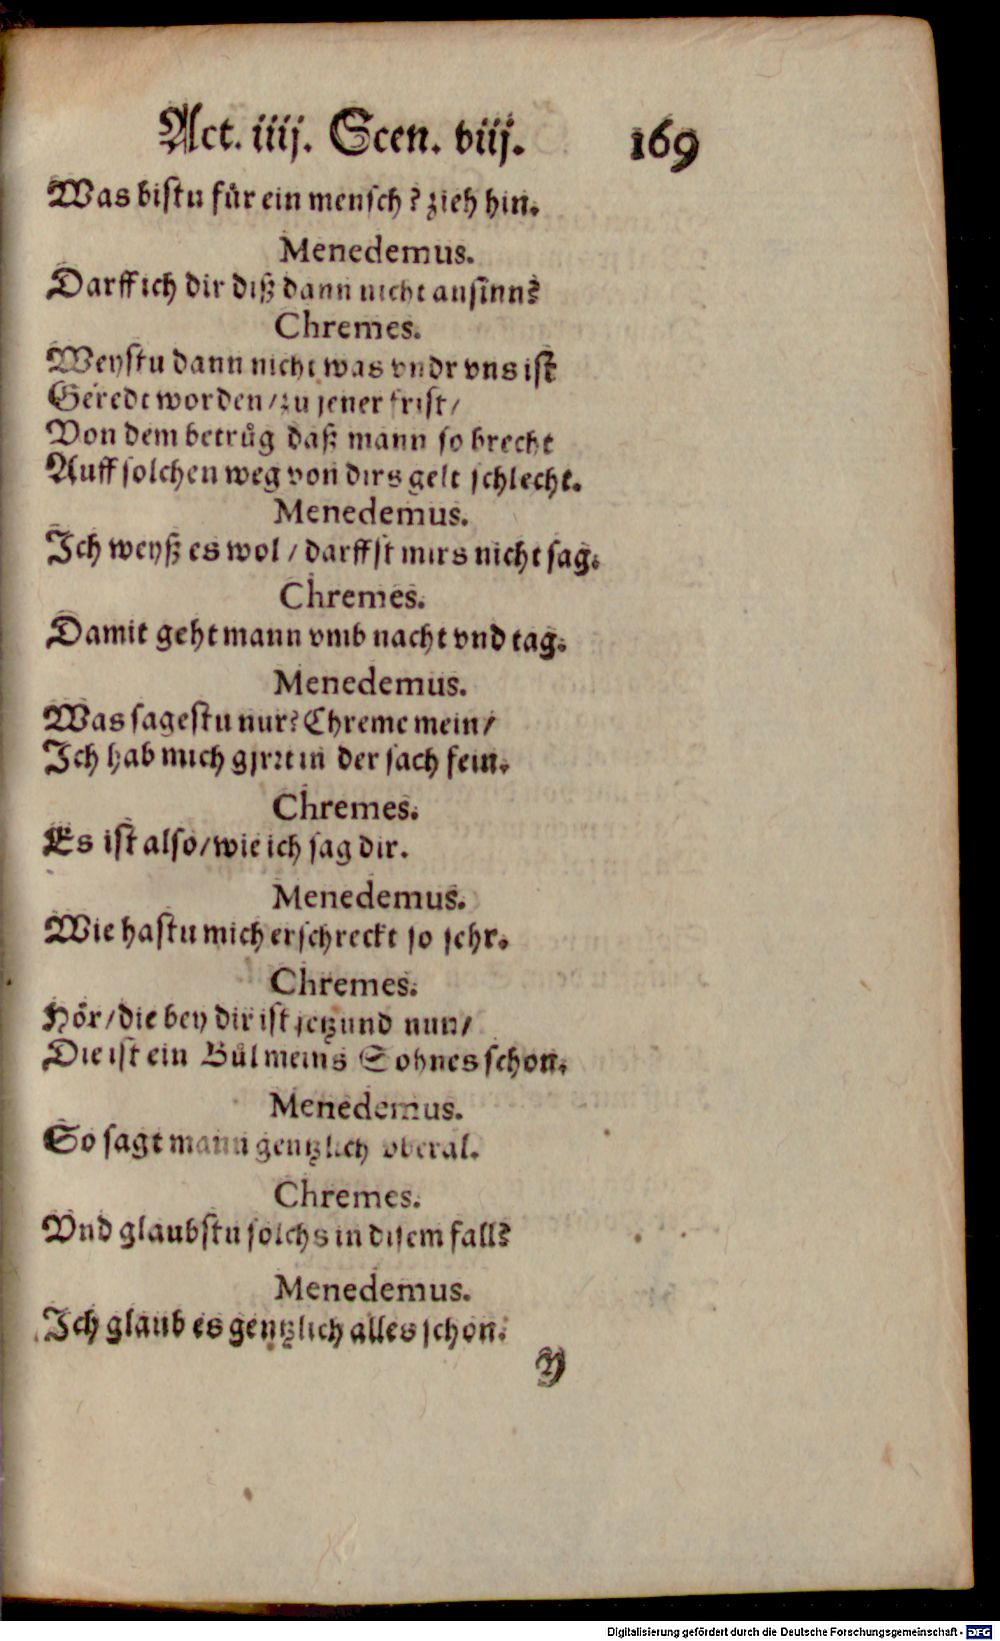 Act. iiij. Scen. viij. 169
Was bistu fůr ein mensch? zieh hin.
Menedemus.
Darff ich dir diß dann nicht ansinn?
Chremes.
Weystu dann nicht was vndr vns ist
Geredt worden/ zu jener frist/
Von dem betrůg daß mann so brecht
Auff solchen weg von dirs gelt schlecht.
Menedemus.
Ich weyß es wol / darffst mirs nicht sag.
Chremes.
Damit geht mann vmb nacht vnd tag.
Menedemus.
Was sagestu nur? Chreme mein/
Ich hab mich gjrrt in der sach fein.
Chremes.
Es ist also/ wie ich sag dir.
Menedemus.
Wie hastu mich erschreckt so sehr.
Chremes.
Hör/ die bey dir ist jetzund nun/
Die ist ein Bůl meins Sohnes schon.
Menedemus.
So sagt mann gentzlich vberal.
Chremes.
Vnd glaubstu solchs in disem fall?
Menedemus.
Ich glaub es gentzlich alles schon.
Y
Digitalisierung gefördert durch die Deutsche Forschungsgemeinschaft - DFG